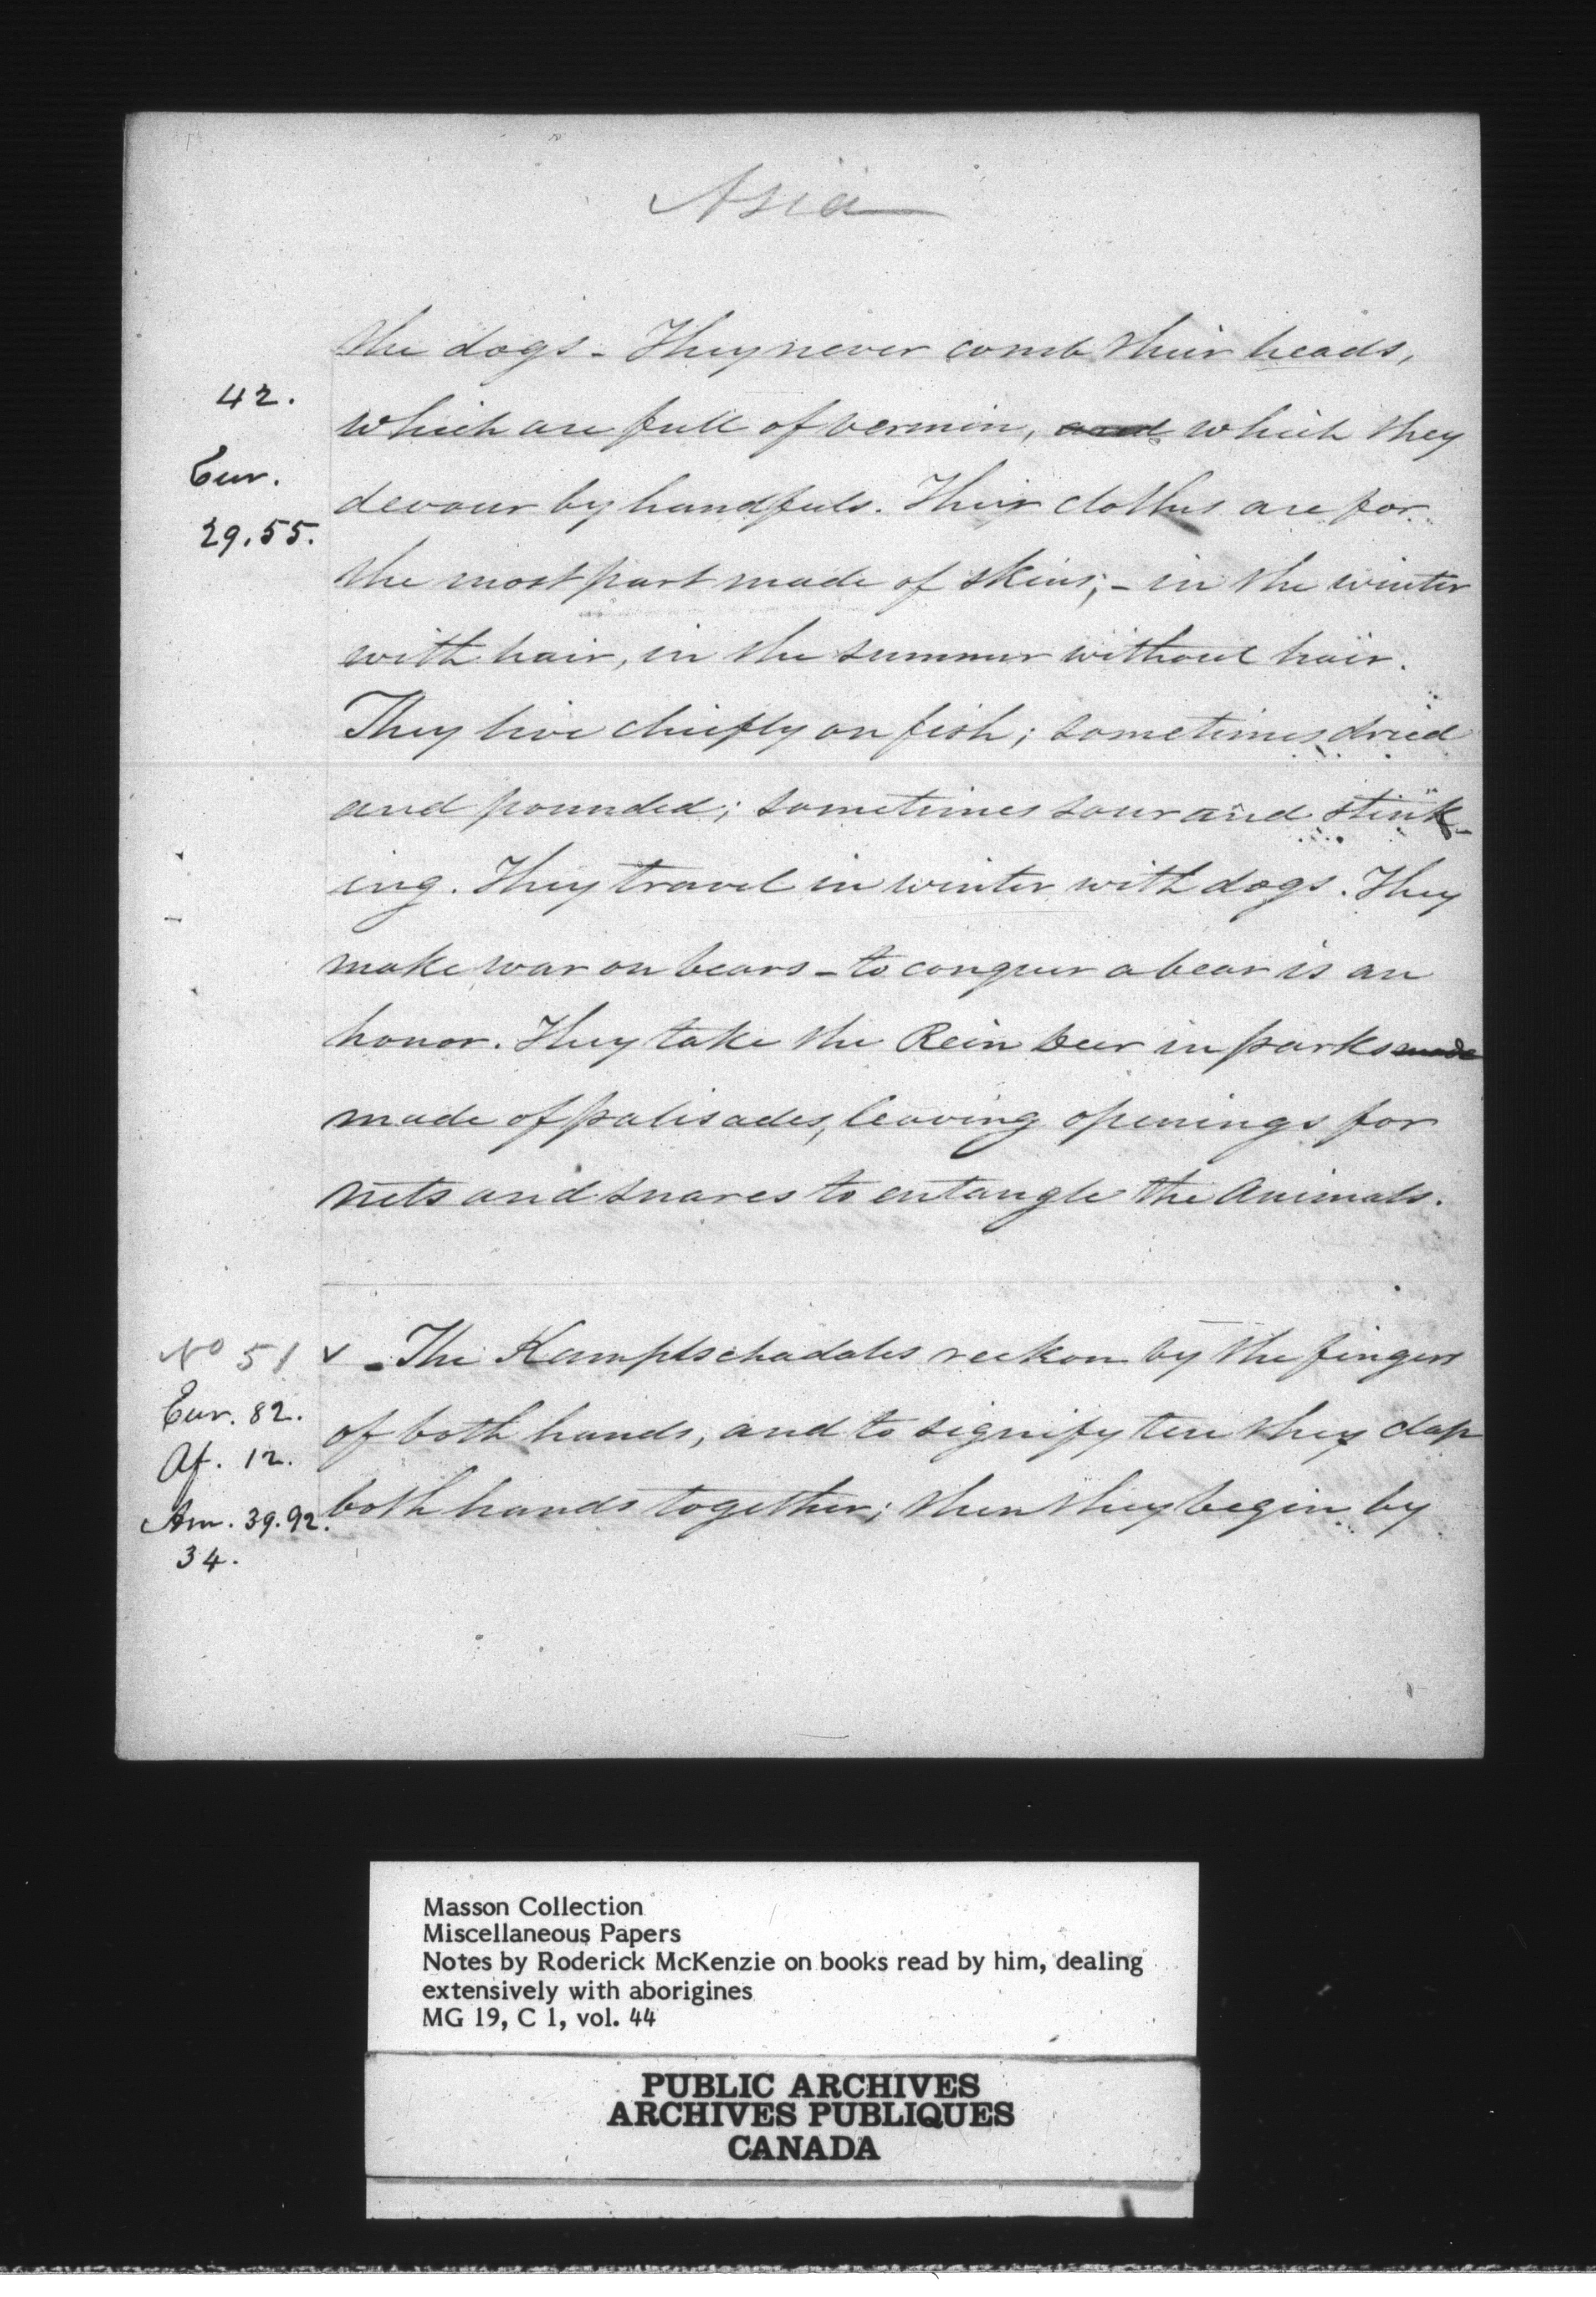 Asia
the dogs - They never comb their heads,
42.
which are full of vermin, and which they
Eur.
devour by handfuls. Their clothes are for
29.55.
the most part made of skins; - in the winter
with hair, in the summer without hair.
They live chiefly on fish; sometimes dried
and pounded; sometimes sour and stink-
ing. They travel in winter with dogs. They
make war on bears - to conquer a bear is an
honor. They take the Rein Deer in parks made
made of palisades, leaving openings for
nets and snares to entangle the Animals.
No 51 v - The Kamptschadales reckon by the fingers
Eur. 82.
of both hands, and to signify ten they clap
Af. 12.
both hands together; then they begin by
Am. 39.92.
34.
Masson Collection
Miscellaneous Papers
Notes by Roderick McKenzie on books read by him, dealing
extensively with aborigines
MG 19, C 1, vol. 44
PUBLIC ARCHIVES
ARCHIVES PUBLIQUES
CANADA